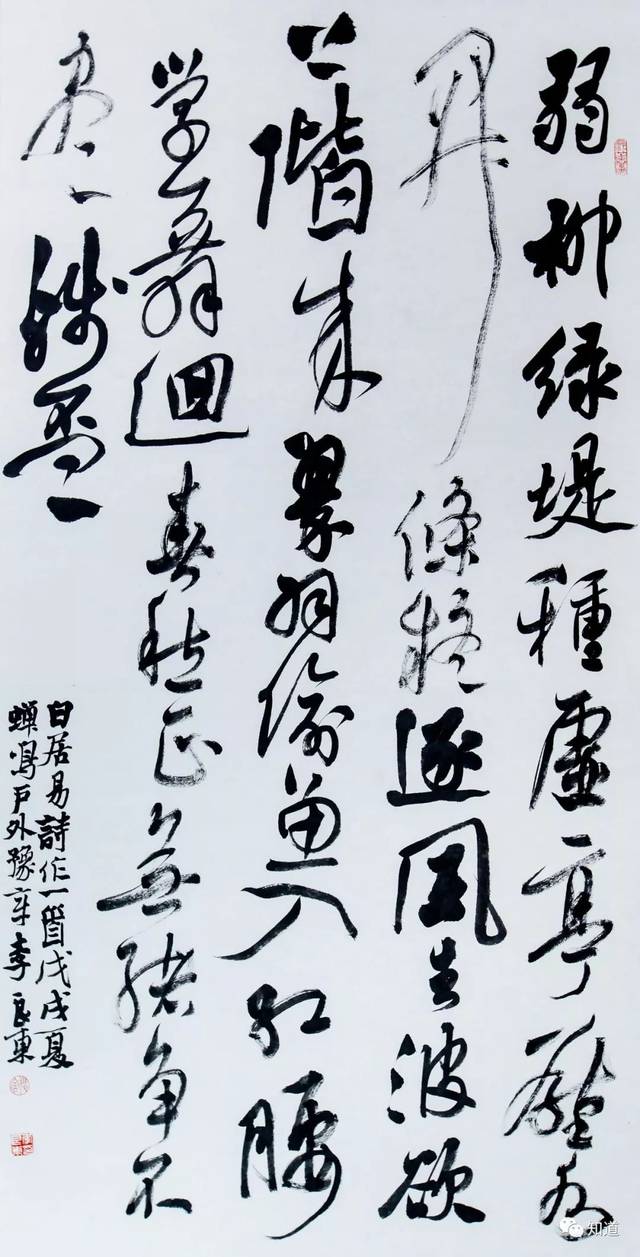 弱柳緣堤種虛亭壓水
開條疑逐風去波欲
上階來翠羽偷魚入紅腰
學舞迴春愁正無緒爭不
盡殘盃
白居易詩作一首戊戌夏
蟬鳴戶外豫章李良東
知道